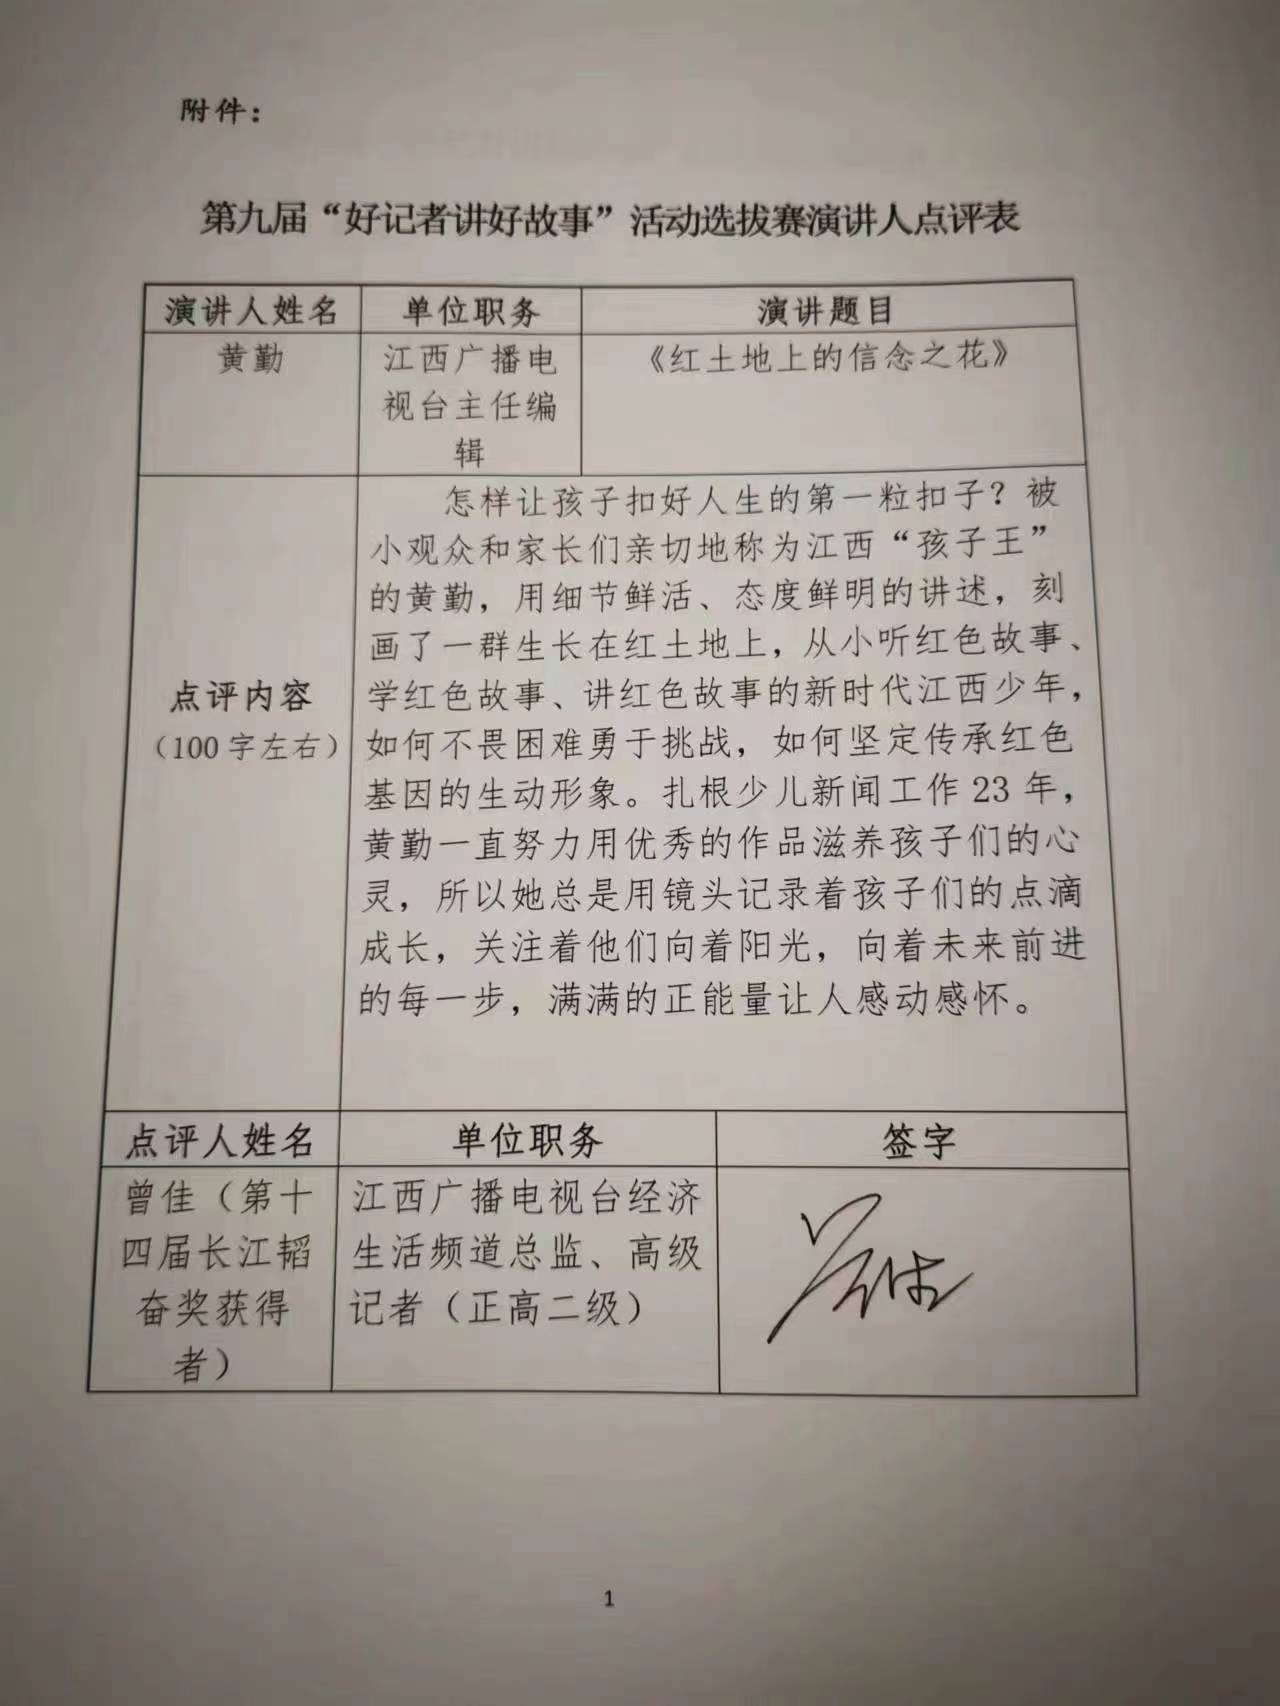 附件：
第九届“好记者讲好故事”活动选拔赛演讲人点评表
演讲人姓名 单位职务 演讲题目
黄勤 江西广播电 《红土地上的信念之花》
视台主任编
辑
怎样让孩子扣好人生的第一粒扣子？被
小观众和家长们亲切地称为江西“孩子王”
的黄勤，用细节鲜活、态度鲜明的讲述，刻
画了一群生长在红土地上，从小听红色故事、
点评内容 学红色故事、讲红色故事的新时代江西少年，
（100字左右） 如何不畏困难勇于挑战，如何坚定传承红色
基因的生动形象。扎根少儿新闻工作 23 年，
黄勤一直努力用优秀的作品滋养孩子们的心
灵，所以她总是用镜头记录着孩子们的点滴
成长，关注着他们向着阳光，向着未来前进
的每一步，满满的正能量让人感动感怀。
点评人姓名 单位职务 签字
曾佳（第十 江西广播电视台经济
四届长江韬 生活频道总监、高级
奋奖获得 记者（正高二级）
者） 曾佳
1